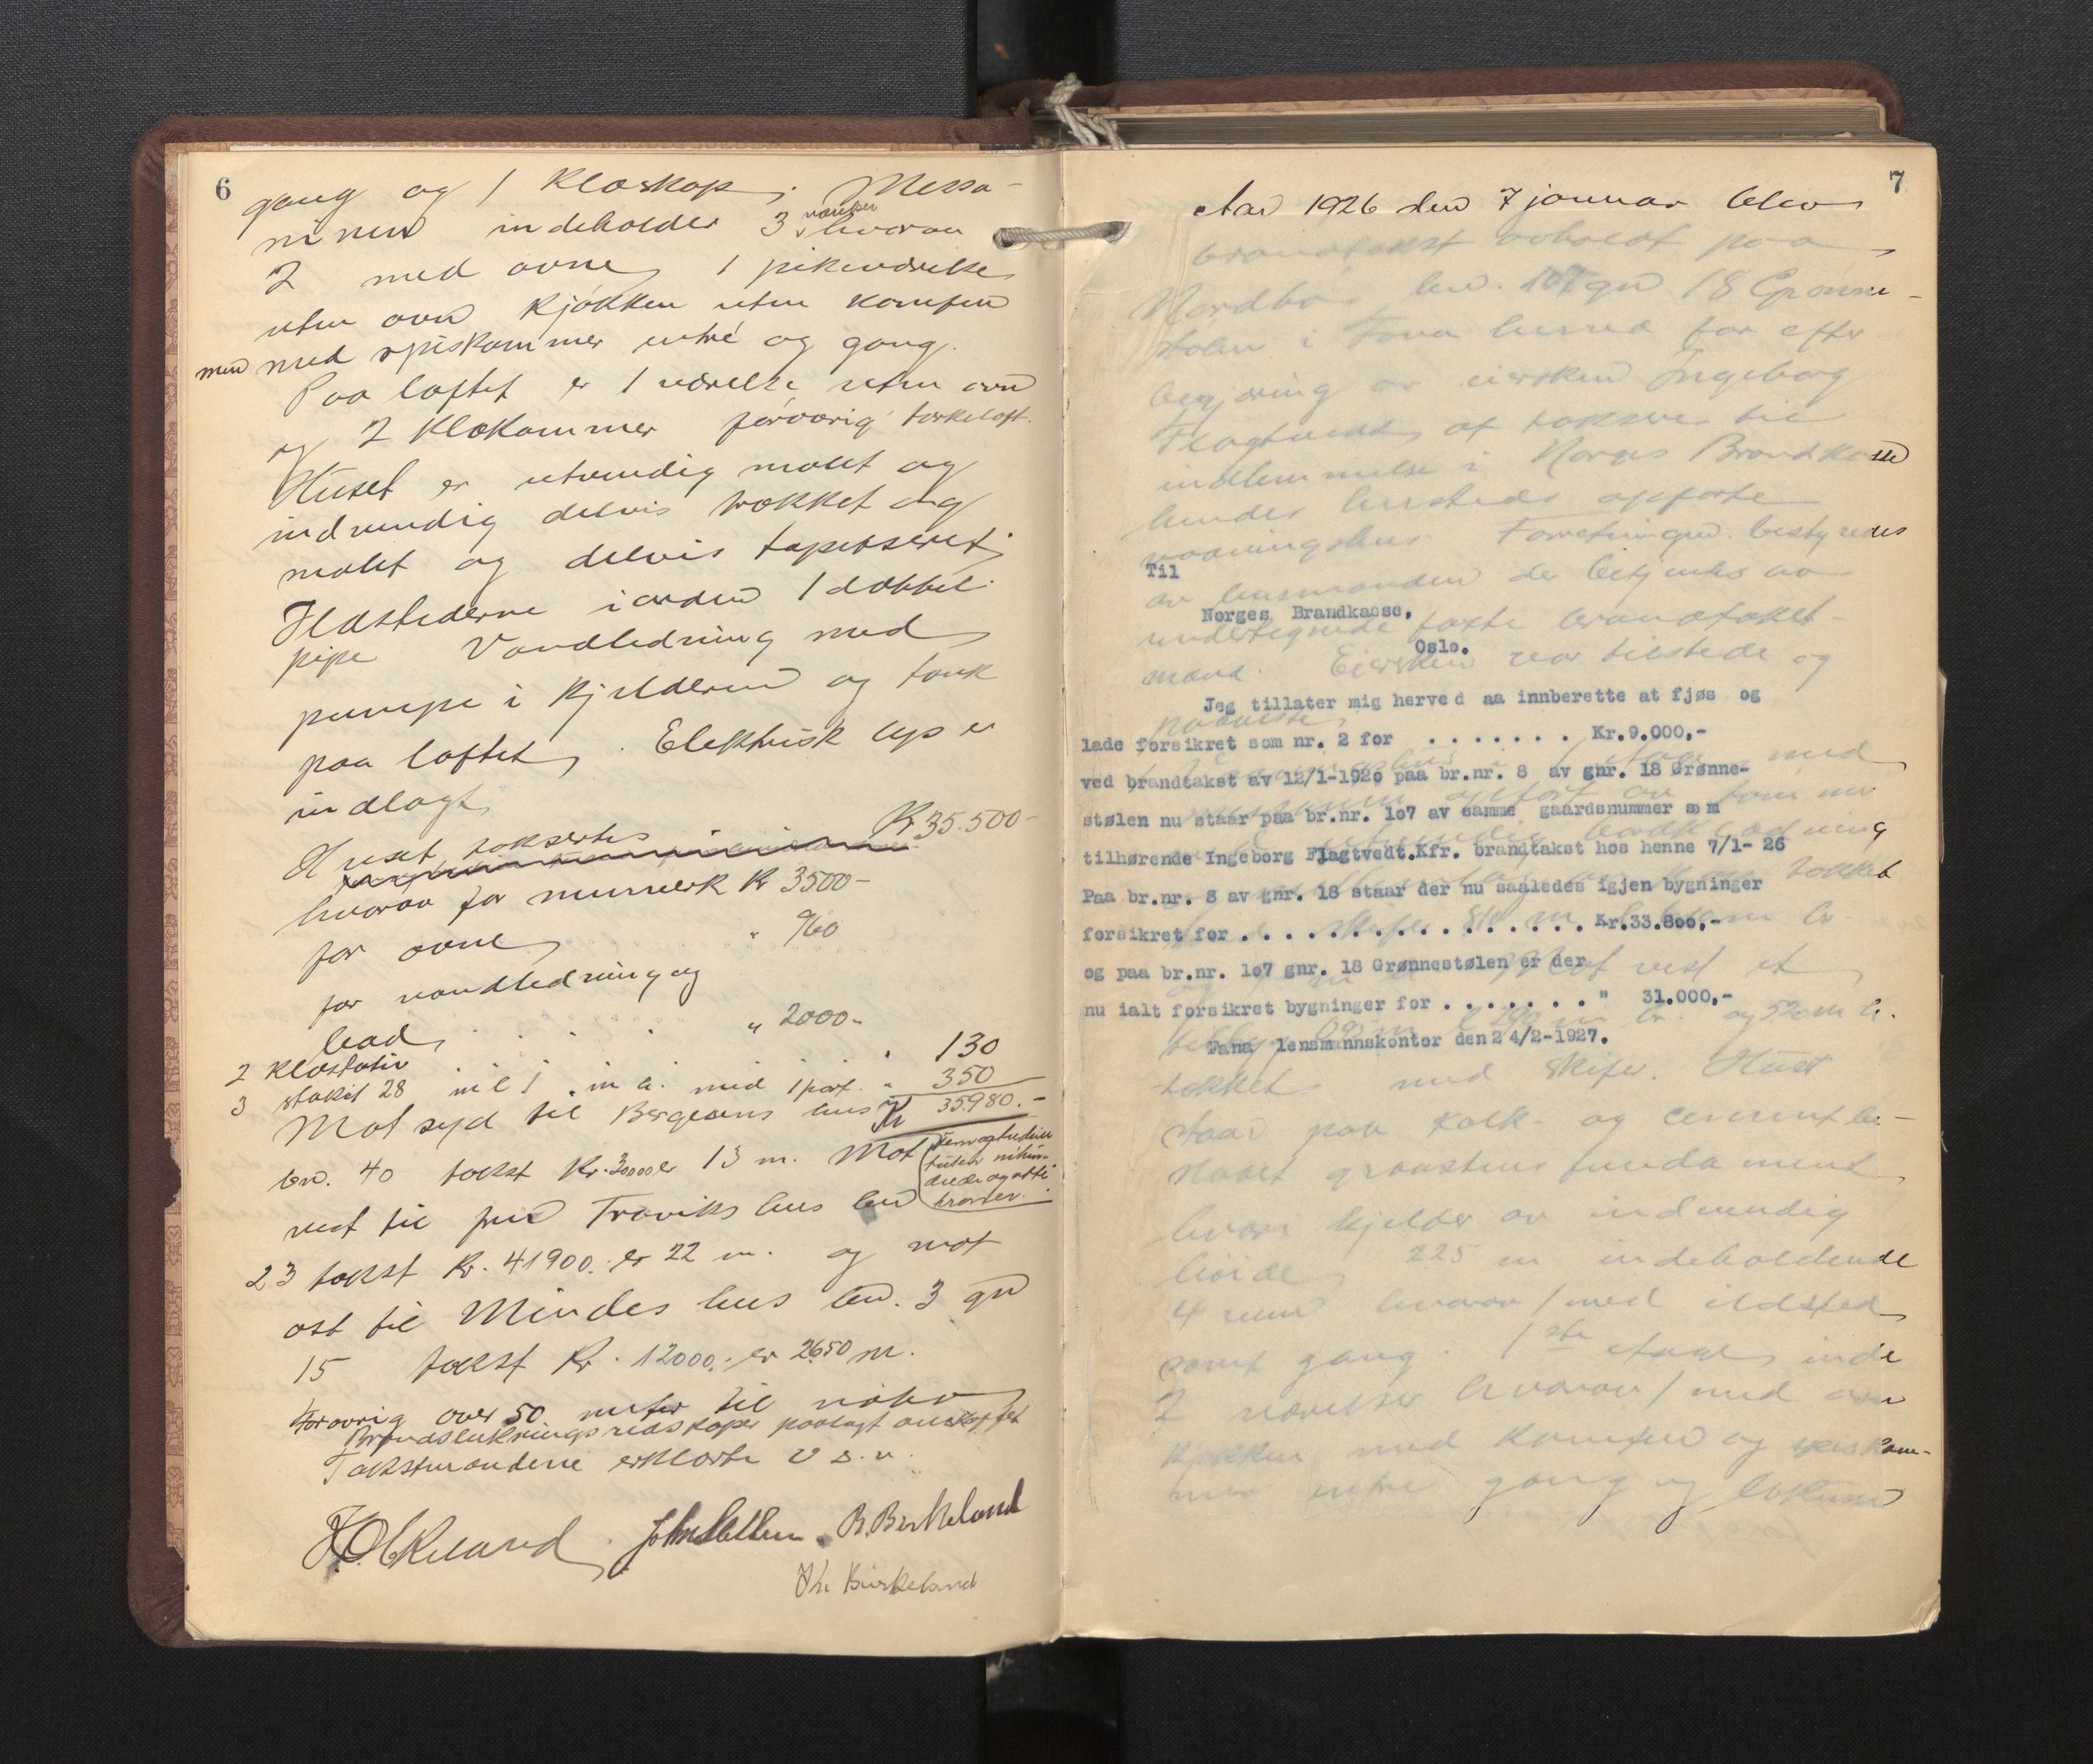 6
gang og 1 Klæskap. Messa-
ninen indeholder 3 værelser hvorav
2 med ovne, 1 pikeværelse
uten ovn kjøkken uten komfur
men med spiskammer entré og gang.
Paa loftet er 1 værelse uten ovn
og 2 Klækammer forøvrig tørkeloft.
Huset er utvendig malet og
indvendig delvis trækket og
malet og delvis tapetseret;
Ildstederne i orden 1 dobbel
pipe Vandledning med
pumpe i kjelderen og tank
paa loftet. Elektrisk lys er
indlagt,
Huset takseres Kr 35.500-
hvorav for murverk Kr 3500-
for ovne " 960
for vandledning og
bad " 2000-
2 Klæstativ " 130
3 stakit 28 m l 1 m h. med 1 port. " 350
Mot syd til Bergesens hus Kr 35980.-
bn. 40 takst Kr. 30000 er 13 m. Mot
(Femogtredive
tusen nihun-
drede og otti
kroner.
vest til fru Traviks hus bn
23 takst Kr. 41900.- er 22 m. og mot
øst til Mindes hus bn. 3 gn
15 takst Kr. 12000.- er 26.50 m.
Forøvrig over 50 meter til nabo
Brandslukningsredskaper paalagt anskaffet
Takstmændene erklærte
B. Birkeland
Birkeland
7
Aar 1926 den 7 januar blev
brandtakst avholdt paa
Nordbø bn. 107 gn 18 Grønne-
stølen i Fana herred for efter
begjæring av eiersken Ingeborg
Flagtvedt at taksere til
indlemmelse i Norges Brandkasse
hendes hersteds opførte
vaaningshus. Forretningen bestyredes
av lensmanden der betjentes av
undertegnede faste brandtakst-
mænd. Eiersken var tilstede og
paaviste
Til
Norges Brandkasse,
Oslo.
Jeg tillater mig herved aa innberette at fjøs og
lade forsikret som nr. 2 for . . . . . . . Kr.9.000,-
ved brandtakst av 12/1-1920 paa br.nr. 8 av gnr. 18 Grønne-
stølen nu staar paa br.nr. 107 av samme gaardsnummer som
tilhørende Ingeborg Flagtvedt.Kfr. brandtakst hos henne 7/1- 26
Paa br.nr. 8 av gnr. 18 staar der nu saaledes igjen bygninger
forsikret for . . . . . . . . . . . . . . . . Kr.33.800,-
og paa br.nr. 107 gnr. 18 Grønnestølen er der
nu ialt forsikret bygninger for . . . . . . . " 31.000,-
Fana lensmannskontor den 24/2-1927.
tækket med skifer. Huset
staar paa kalk- og cement be-
slaaet graastens fundament
hvori kjelder av indvendig
høide 225 m indeholdende
4 rum hvorav 1 med ildsted
samt gang. 1ste etage inde
2 værelser hvorav 1 med ovn
kjøkken med komfur og spiskam-
mer entre gang og